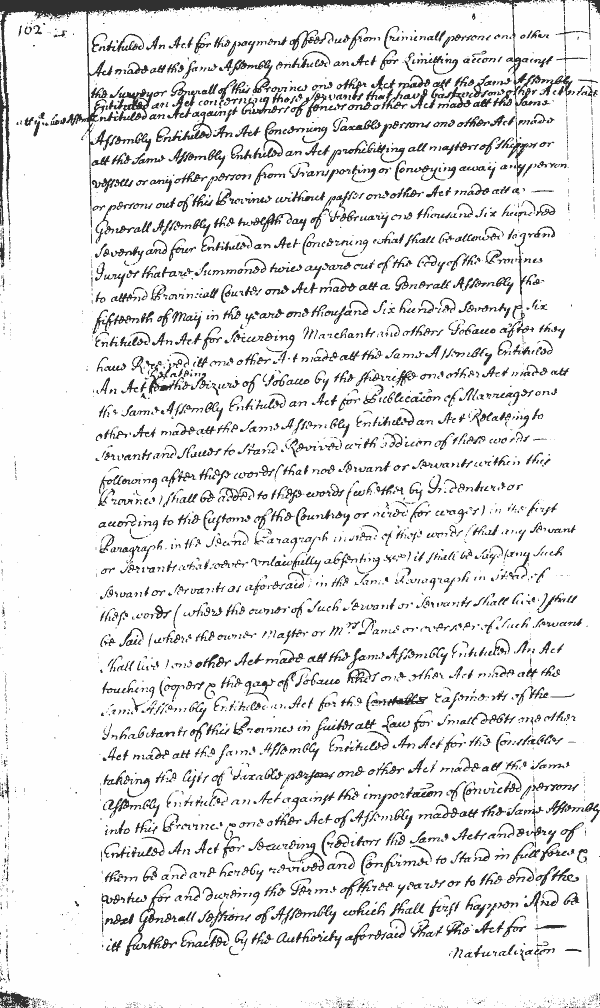 102
Entituled An Act for the payment of fees due from Criminall persons one other
Act made att the same Assembly entituled an Act for Limitting accons against
the Surveyor Generall of this Province one other Act made att the Same Assembly
Entituled an Act concerning those Servants that have bastards one other Act made
att the same Assembly Entituled an Act against owners of fences one other Act made att the Same
Assembly Entituled An Act Concerning Taxable persons one other Act made
att the same Assembly Entituled an Act prohibitting all masters of shipps or
vessells or any other person from Transporting or Conveying away any person
or persons out of this Province without passes one other Act made att a
Generall Assembly the twelfth day of February one thousand Six hundred
Seventy and four Entituled an Act Concerning what shall be allowed to grand
Juryes that are Summoned twice a yeare out of the body of the Province
to attend Provinciall Courtes one Act made att a Generall Assembly the
fifteenth of May in the yeare one thousand Six hundred Seventy & Six
Entituled An Act for Secureing Marchants and others Tobacco after they
have Received itt one other Act made att the Same Assembly Entituled
An Act Relateing the Seizure of Tobacco by the Sherriffe one other Act made att
the Same Assembly Entituled an Act for Publicacon of Marriages one
other Act made att the Same Assembly Entituled an Act Relateing to
Servants and Slaves to Stand Revived with addicon of these words
following after these words (that noe Servant or Servants within this
Province) shall be added to these words (whether by Indenture or
acording to the Custome of the Countrey or hired for wages) in the first
Paragraph in the Second Paragraph instead of those words (that any Servant
or Servants whatsoever unlawfully absenting &ca) it shall be Sayd (any Such
Servant or Servants as aforesaid) in the Same Paragraph in Stead of
these words (where the owner of Such Servant or Servants shall live) shall
be Said (where the owner Master or Mrs Dame or overseer of Such Servant
shall live) one other Act made att the same Assembly Entituled An Act
touching Coopers & the gage of Tobacco hhds one other Act made att the
Same Assembly Entituled an Act for the Easements of the
Inhabitants of this Province in Suites att Law for Small debts one other
Act made att the same Assembly Entituled An Act for the Constables
takeing the lists of Taxable persons one other Act made att the Same
Assembly Entituled an Act against the importacon of Convicted persons
into this Province & one other Act of Assembly made att the Same Assembly
Entituled An Act for Secureing Creditors the Same Acts and every of
them be and are hereby revived and Confirmed to Stand in full force &
vertue for and dureing the Terme of three yeares or to the end of the
next Generall Sessions of Assembly which shall first happen And be
itt further Enacted by the Authority aforesaid That the Act for
Naturalizacon